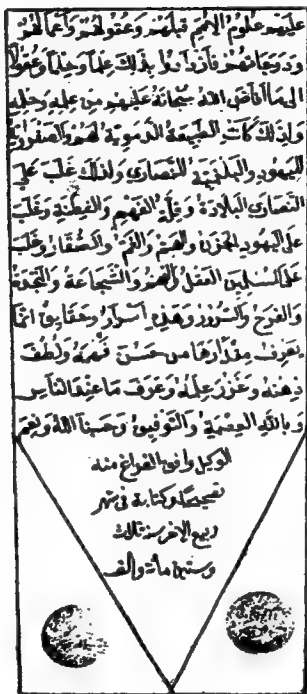 عليهم علوم الامم قبلهم وعقولهم واعمالهم
ودرجاتهم فازدادوا بذلك علما وحلما وعقولا
الى ما افاض الله سبحانه عليهم من علمه وحلمه
ولذلك كانت الطبيعة الدموية لهم والصفراوية
لليهود والبلغمية للنصارى ولذلك غلب على
النصارى البلادة وقلة الفهم والفطنة وغلب
على اليهود الحزن والهم والغم والصغار وغلب
على المسلمين العقل والفهم والشجاعة والنجدة
والفرح والسرور وهذه اسرار وحقايق انما
يعرف مقدارها من حسن فهمه ولطف
ذهنه وغزر علمه وعرف ما عند الناس
وبالله العصمة والتوفيق وحسبنا الله ونعم
الوكيل وافق الفراغ منه
تصحيحا وكتابة في شهر
ربيع الاخر سنة ثلاث
وستين مائة والف